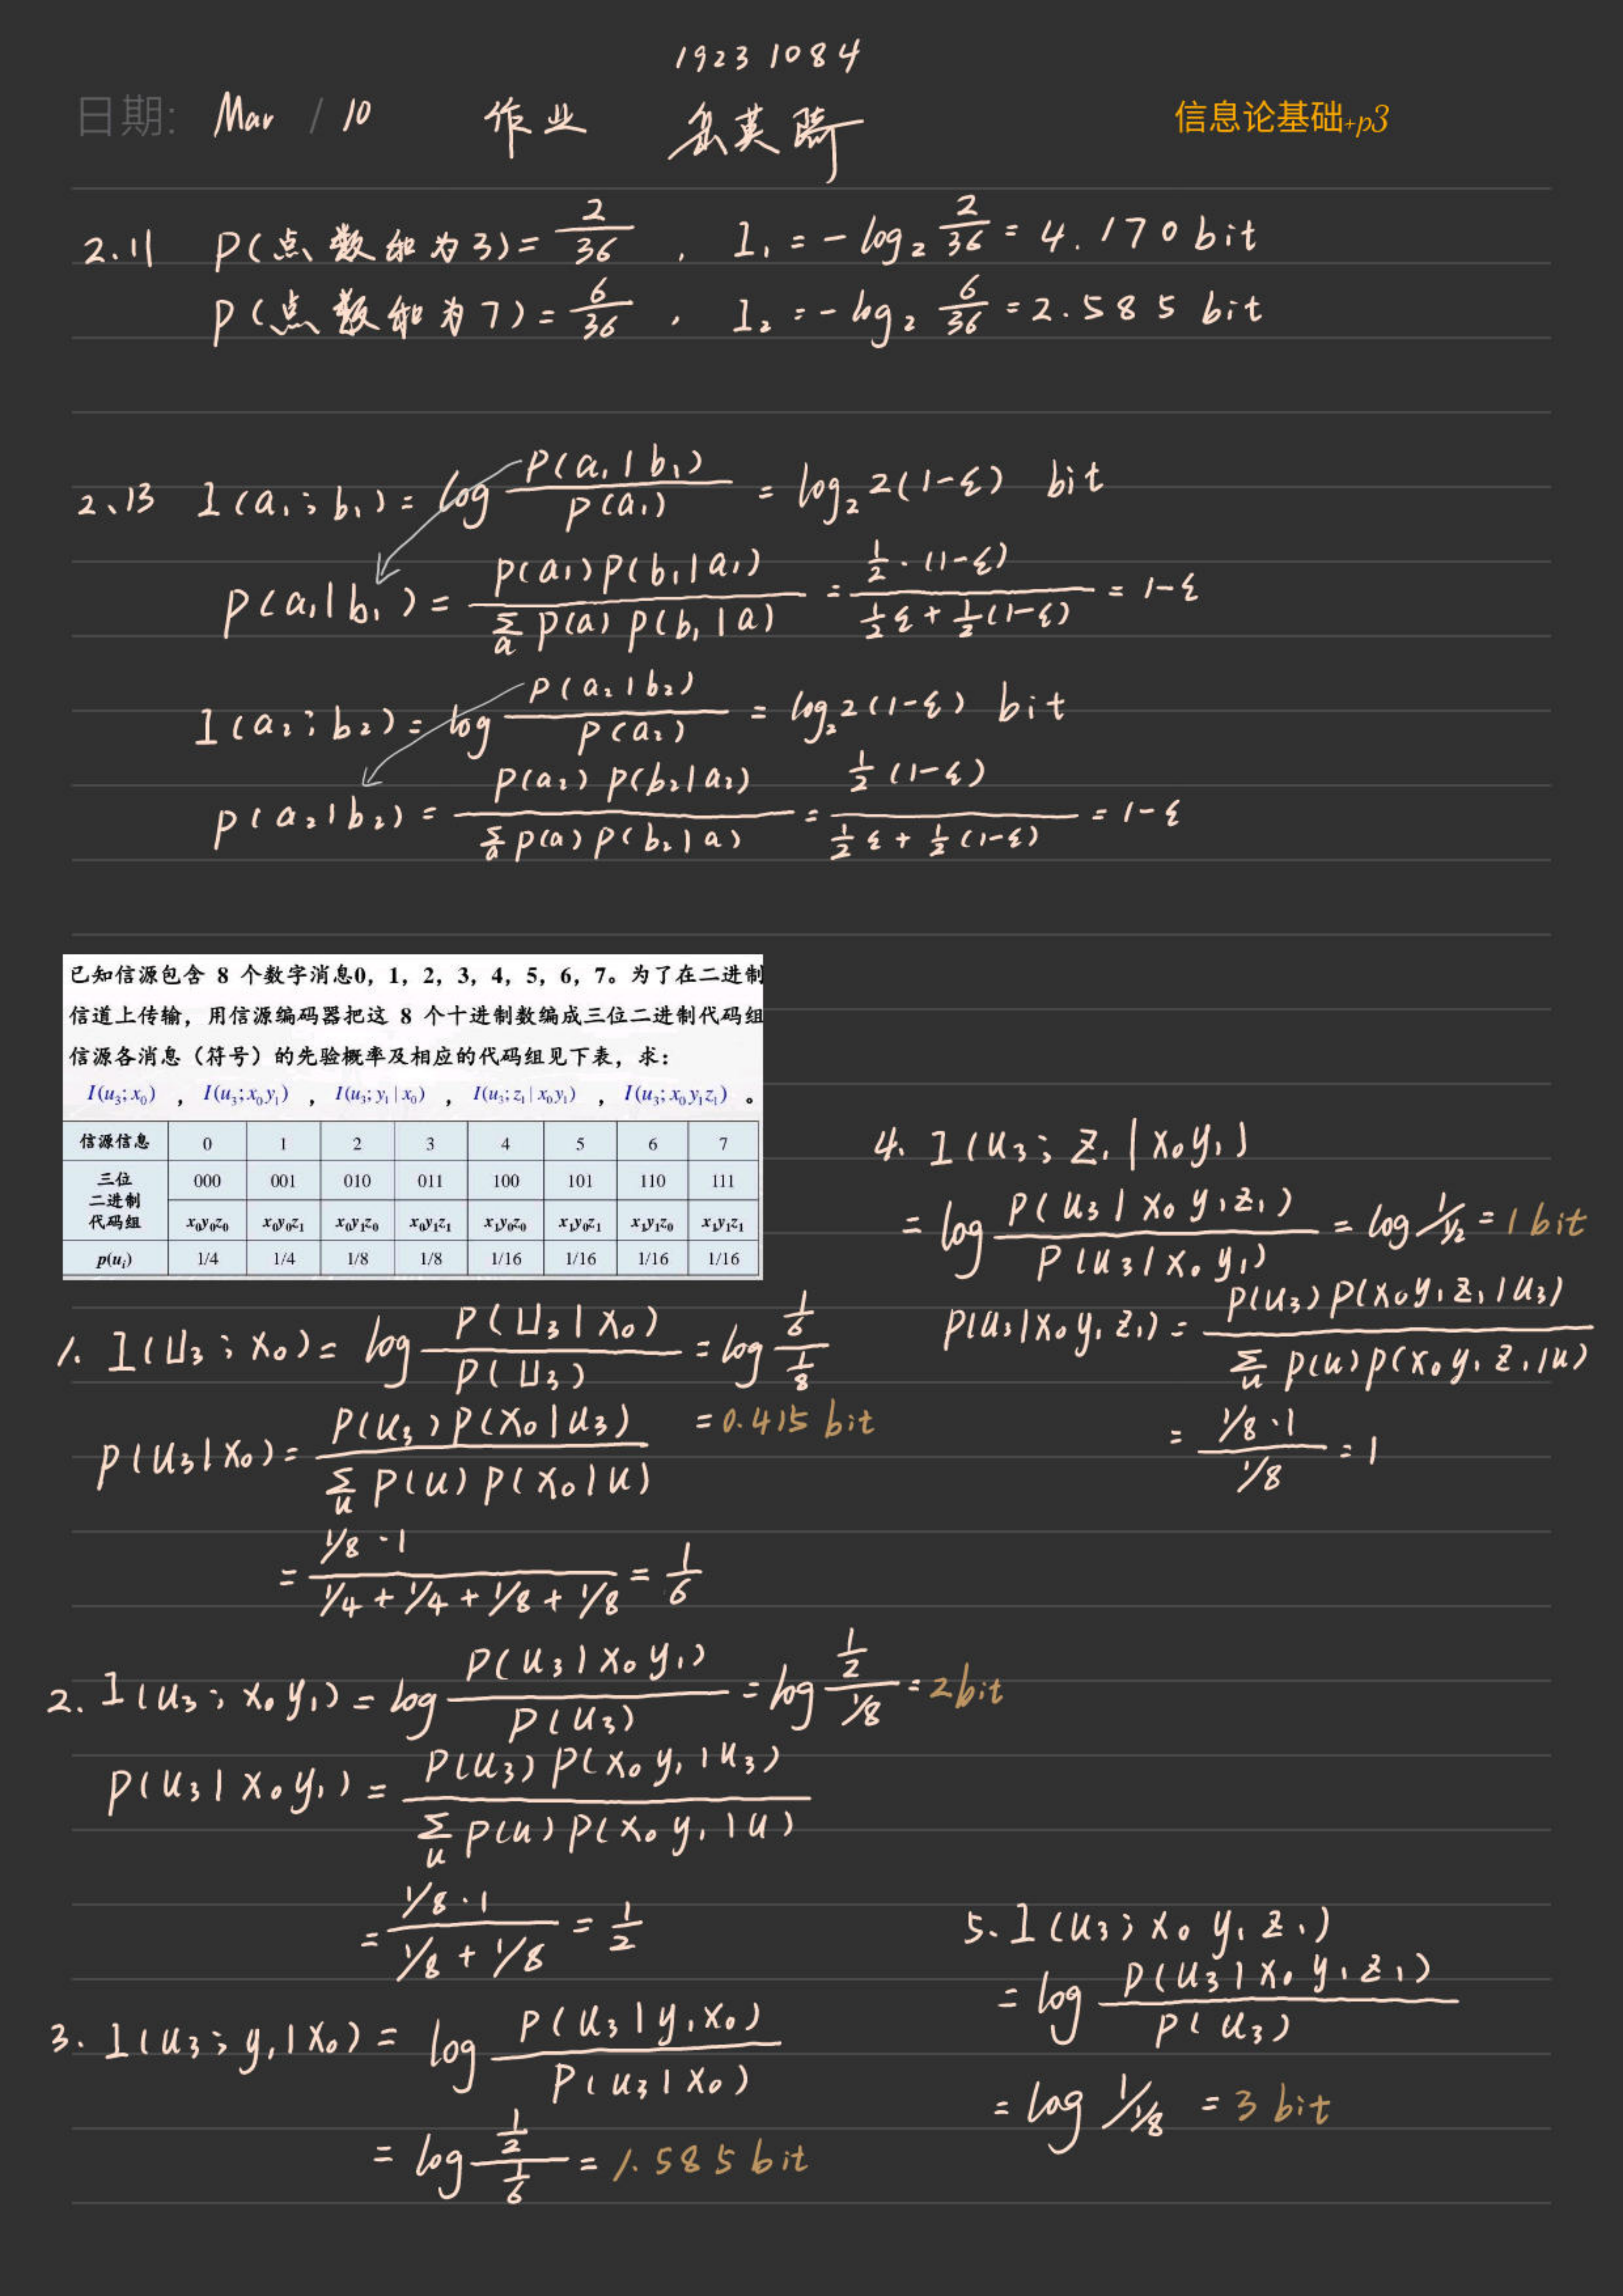 19231084
日期: Mar / 10 作业 英 信息论基础+p3
2.11 P(点数和为3)= 2/36 , I₁ = -log₂ 2/36 = 4.170 bit
P(点数和为7)= 6/36 , I₂ = -log₂ 6/36 = 2.585 bit
2、13 I(a₁;b₁) = log P(a₁|b₁)/P(a₁) = log₂ 2(1-ε) bit
P(a₁|b₁) = P(a₁)P(b₁|a₁) / Σₐ P(a)P(b₁|a) = ½·(1-ε) / (½ε + ½(1-ε)) = 1-ε
I(a₂;b₂) = log P(a₂|b₂)/P(a₂) = log₂ 2(1-ε) bit
P(a₂|b₂) = P(a₂)P(b₂|a₂) / Σₐ P(a)P(b₂|a) = ½(1-ε) / (½ε + ½(1-ε)) = 1-ε
已知信源包含 8 个数字消息0，1，2，3，4，5，6，7。为了在二进制
信道上传输，用信源编码器把这 8 个十进制数编成三位二进制代码组
信源各消息（符号）的先验概率及相应的代码组见下表，求：
I(u₃;x₀) ， I(u₃;x₀y₁) ， I(u₃;y₁|x₀) ， I(u₃;z₁|x₀y₁) ， I(u₃;x₀y₁z₁) 。
信源信息 0 1 2 3 4 5 6 7
三位二进制代码组 000 001 010 011 100 101 110 111
x₀y₀z₀ x₀y₀z₁ x₀y₁z₀ x₀y₁z₁ x₁y₀z₀ x₁y₀z₁ x₁y₁z₀ x₁y₁z₁
p(uᵢ) 1/4 1/4 1/8 1/8 1/16 1/16 1/16 1/16
1. I(U₃;X₀) = log P(U₃|X₀)/P(U₃) = log (1/6)/(1/8)
= 0.415 bit
P(U₃|X₀) = P(U₃)P(X₀|U₃) / Σᵤ P(U)P(X₀|U)
= 1/8·1 / (1/4 + 1/4 + 1/8 + 1/8) = 1/6
2. I(U₃;X₀y₁) = log P(U₃|X₀y₁)/P(U₃) = log (1/2)/(1/8) = 2 bit
P(U₃|X₀y₁) = P(U₃)P(X₀y₁|U₃) / Σᵤ P(U)P(X₀y₁|U)
= 1/8·1 / (1/8 + 1/8) = 1/2
3. I(U₃;y₁|X₀) = log P(U₃|y₁X₀)/P(U₃|X₀)
= log (1/2)/(1/6) = 1.585 bit
4. I(U₃;Z₁|X₀y₁)
= log P(U₃|X₀y₁Z₁)/P(U₃|X₀y₁) = log 1/(1/2) = 1 bit
P(U₃|X₀y₁Z₁) = P(U₃)P(X₀y₁Z₁|U₃) / Σᵤ P(U)P(X₀y₁Z₁|U)
= 1/8·1 / 1/8 = 1
5. I(U₃;X₀y₁Z₁)
= log P(U₃|X₀y₁Z₁)/P(U₃)
= log 1/(1/8) = 3 bit